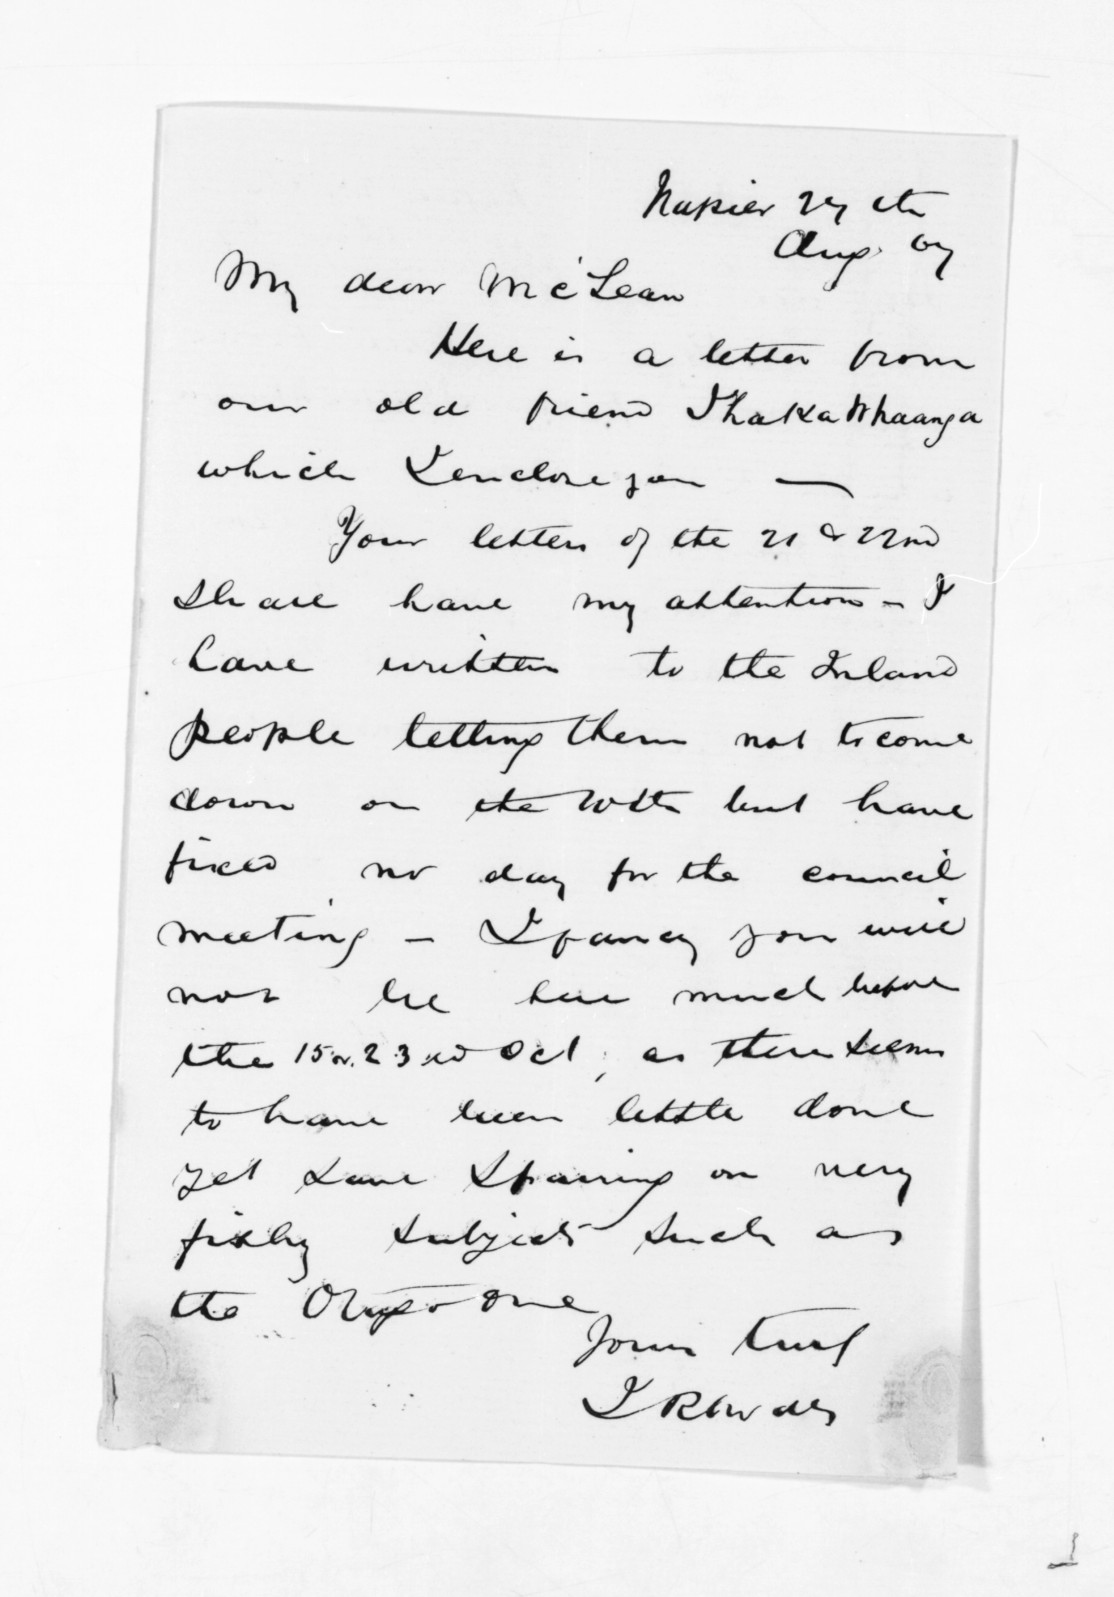 Napier 27th
Aug. 67
My dear McLean
Here is a letter from
our old friend Ihaka Whaanga
which I enclose you —
Your letters of the 21 & 22nd
shall have my attention – I
have written to the Inland
people telling them not to come
down on the 10th but have
fixed no day for the council
meeting – I fancy you will
not be here much before
the 15 or 23rd Oct, as there seems
to have been little done
yet save sparring on very
fishy subjects such as
the Otago one
Yours truly